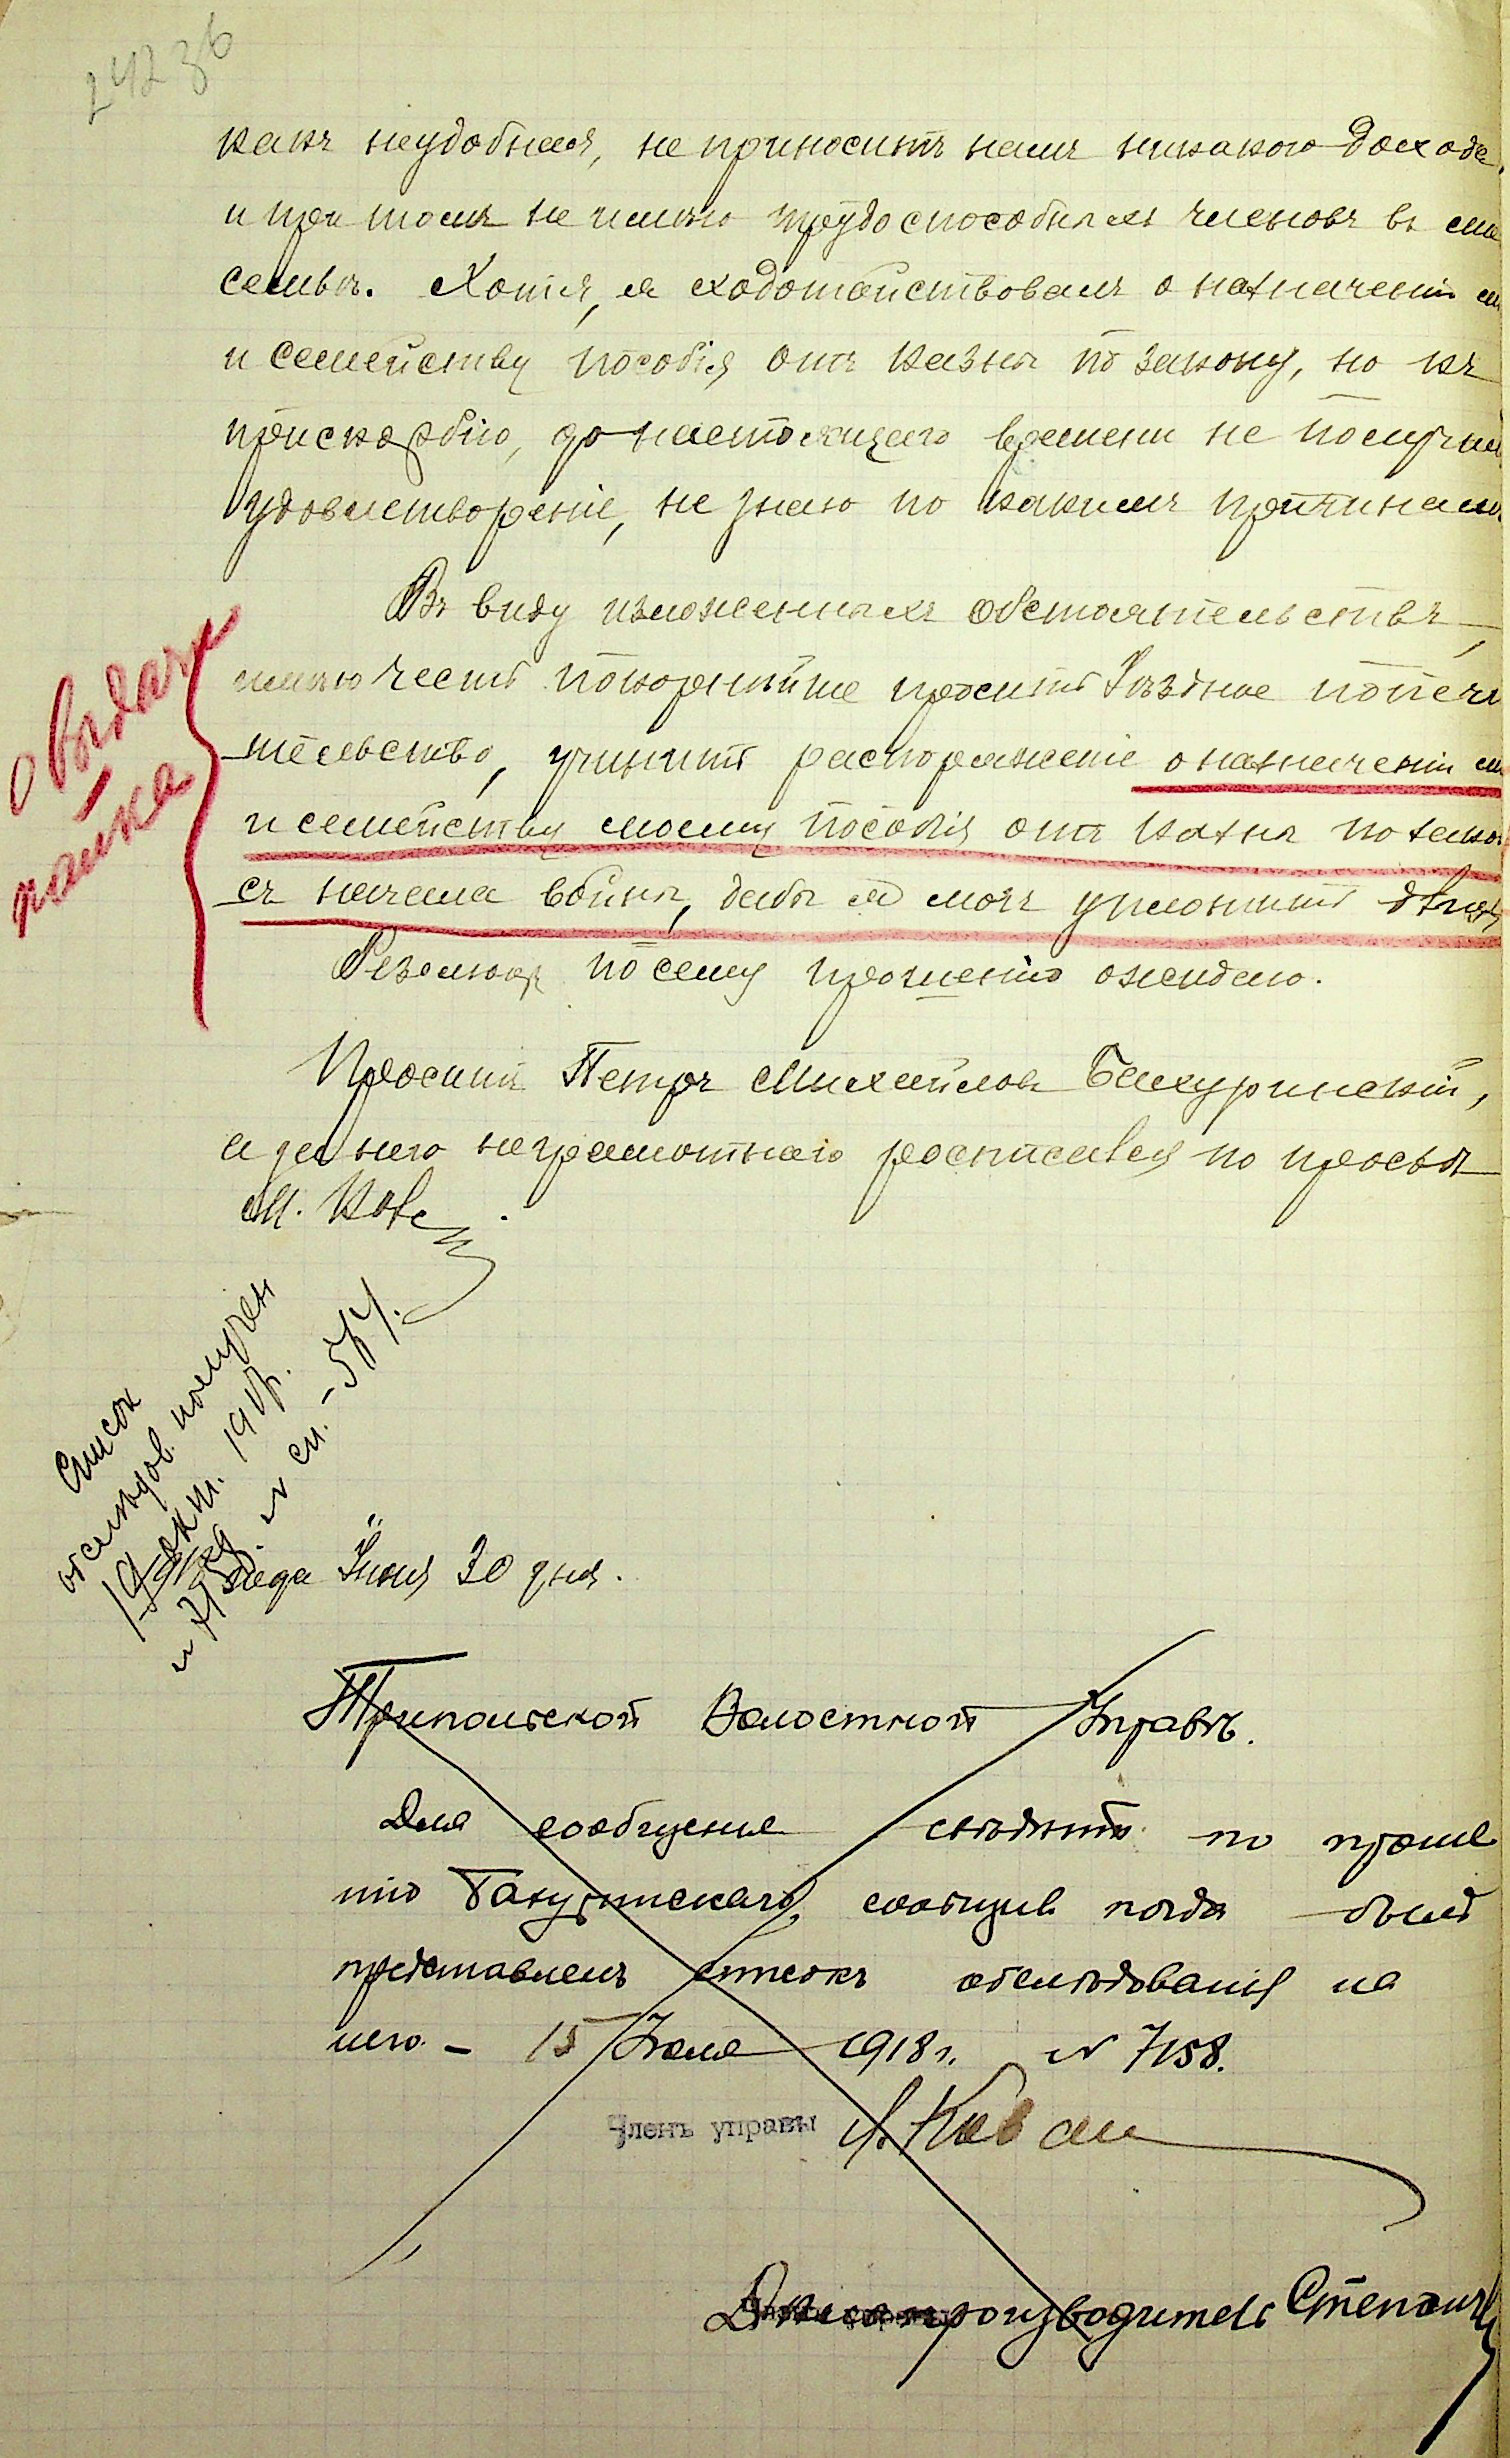 какъ неудобная, не приноситъ намъ никакого дохода,
и при томъ не имѣю трудоспособныхъ членовъ въ
семьѣ. Хотя, я ходотайствовалъ о назначеніи
и семейству пособія отъ казны по закону, но къ
прискорбію, до настоящаго времени не получилъ
удовлетвореніе, не знаю по какимъ причинамъ
Въ виду изложенныхъ обстоятельствъ,
имѣю честь покорнѣйше просить Уѣздное попечи
тельство, учинить распоряженіе о назначеніи
и семейству моему пособія отъ казны по закон
съ начала войны, дабы я могъ уплотить
о выдачи
пайка
Резолюціи по сему прошенію ожидаю.
Проситъ Петръ Михайловъ Бахуринскій,
а за него неграмотнаго росписався по просьбѣ
М.
Список
обслѣдов. получен
19 окт. 191 г.
года Іюня 30 дня.
Трипольской Волостной Управѣ.
Для сообщения свѣдѣній по проше
нію Бахуринскаго, сообщив когда былъ
представленъ списокъ обслѣдованія на
него. – 15 Іюля 1918 г. № 7158.
Членъ управы
Дѣлопроизводитель